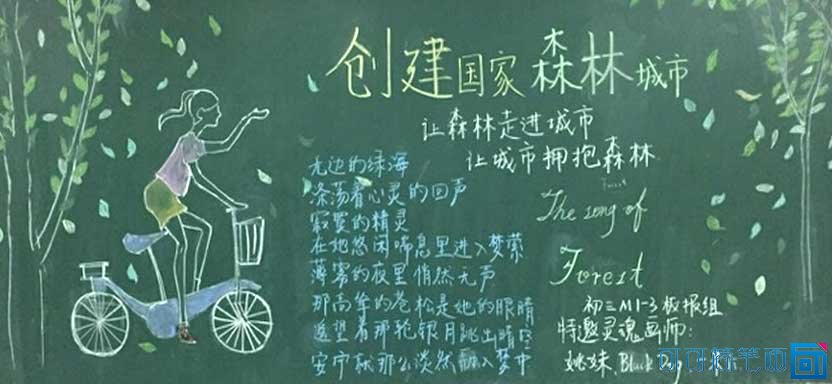 创建国家森林城市
让森林走进城市
让城市拥抱森林
Forest
The song of
Forest
无边的绿海
涤荡着心灵的回声
寂寞的精灵
在她悠闲喘息里进入梦萦
薄雾的夜里悄然无声
那高耸的苍松是她的眼睛
遥望着那轮银月跳出晴空
安宁就那么淡然融入梦中
初三M1-3板报组
特邀灵魂画师:
姚妹、Black